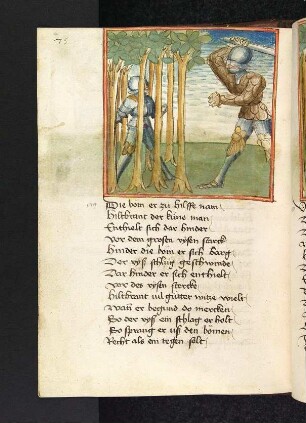 75
179
Die bom er zu hilffe nam
hiltbrant der küne man
Enthielt sich dar hinder
vor dem grosen rysen starck
hinder die bom er sich barg
Der ryß schlug geschwinde
Dar hinder er sich enthielt
vor des rysen stercke
hiltbrant vil guter witze wielt
wan er begund do mercken
So der ryß ein schlag er holt
So sprang er uß den bömen
Recht als ein tegen solt